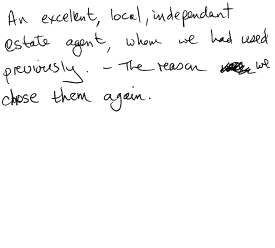 An excellent, local, independent
estate agent, whom we had used
previously. - The reason we
chose them again.